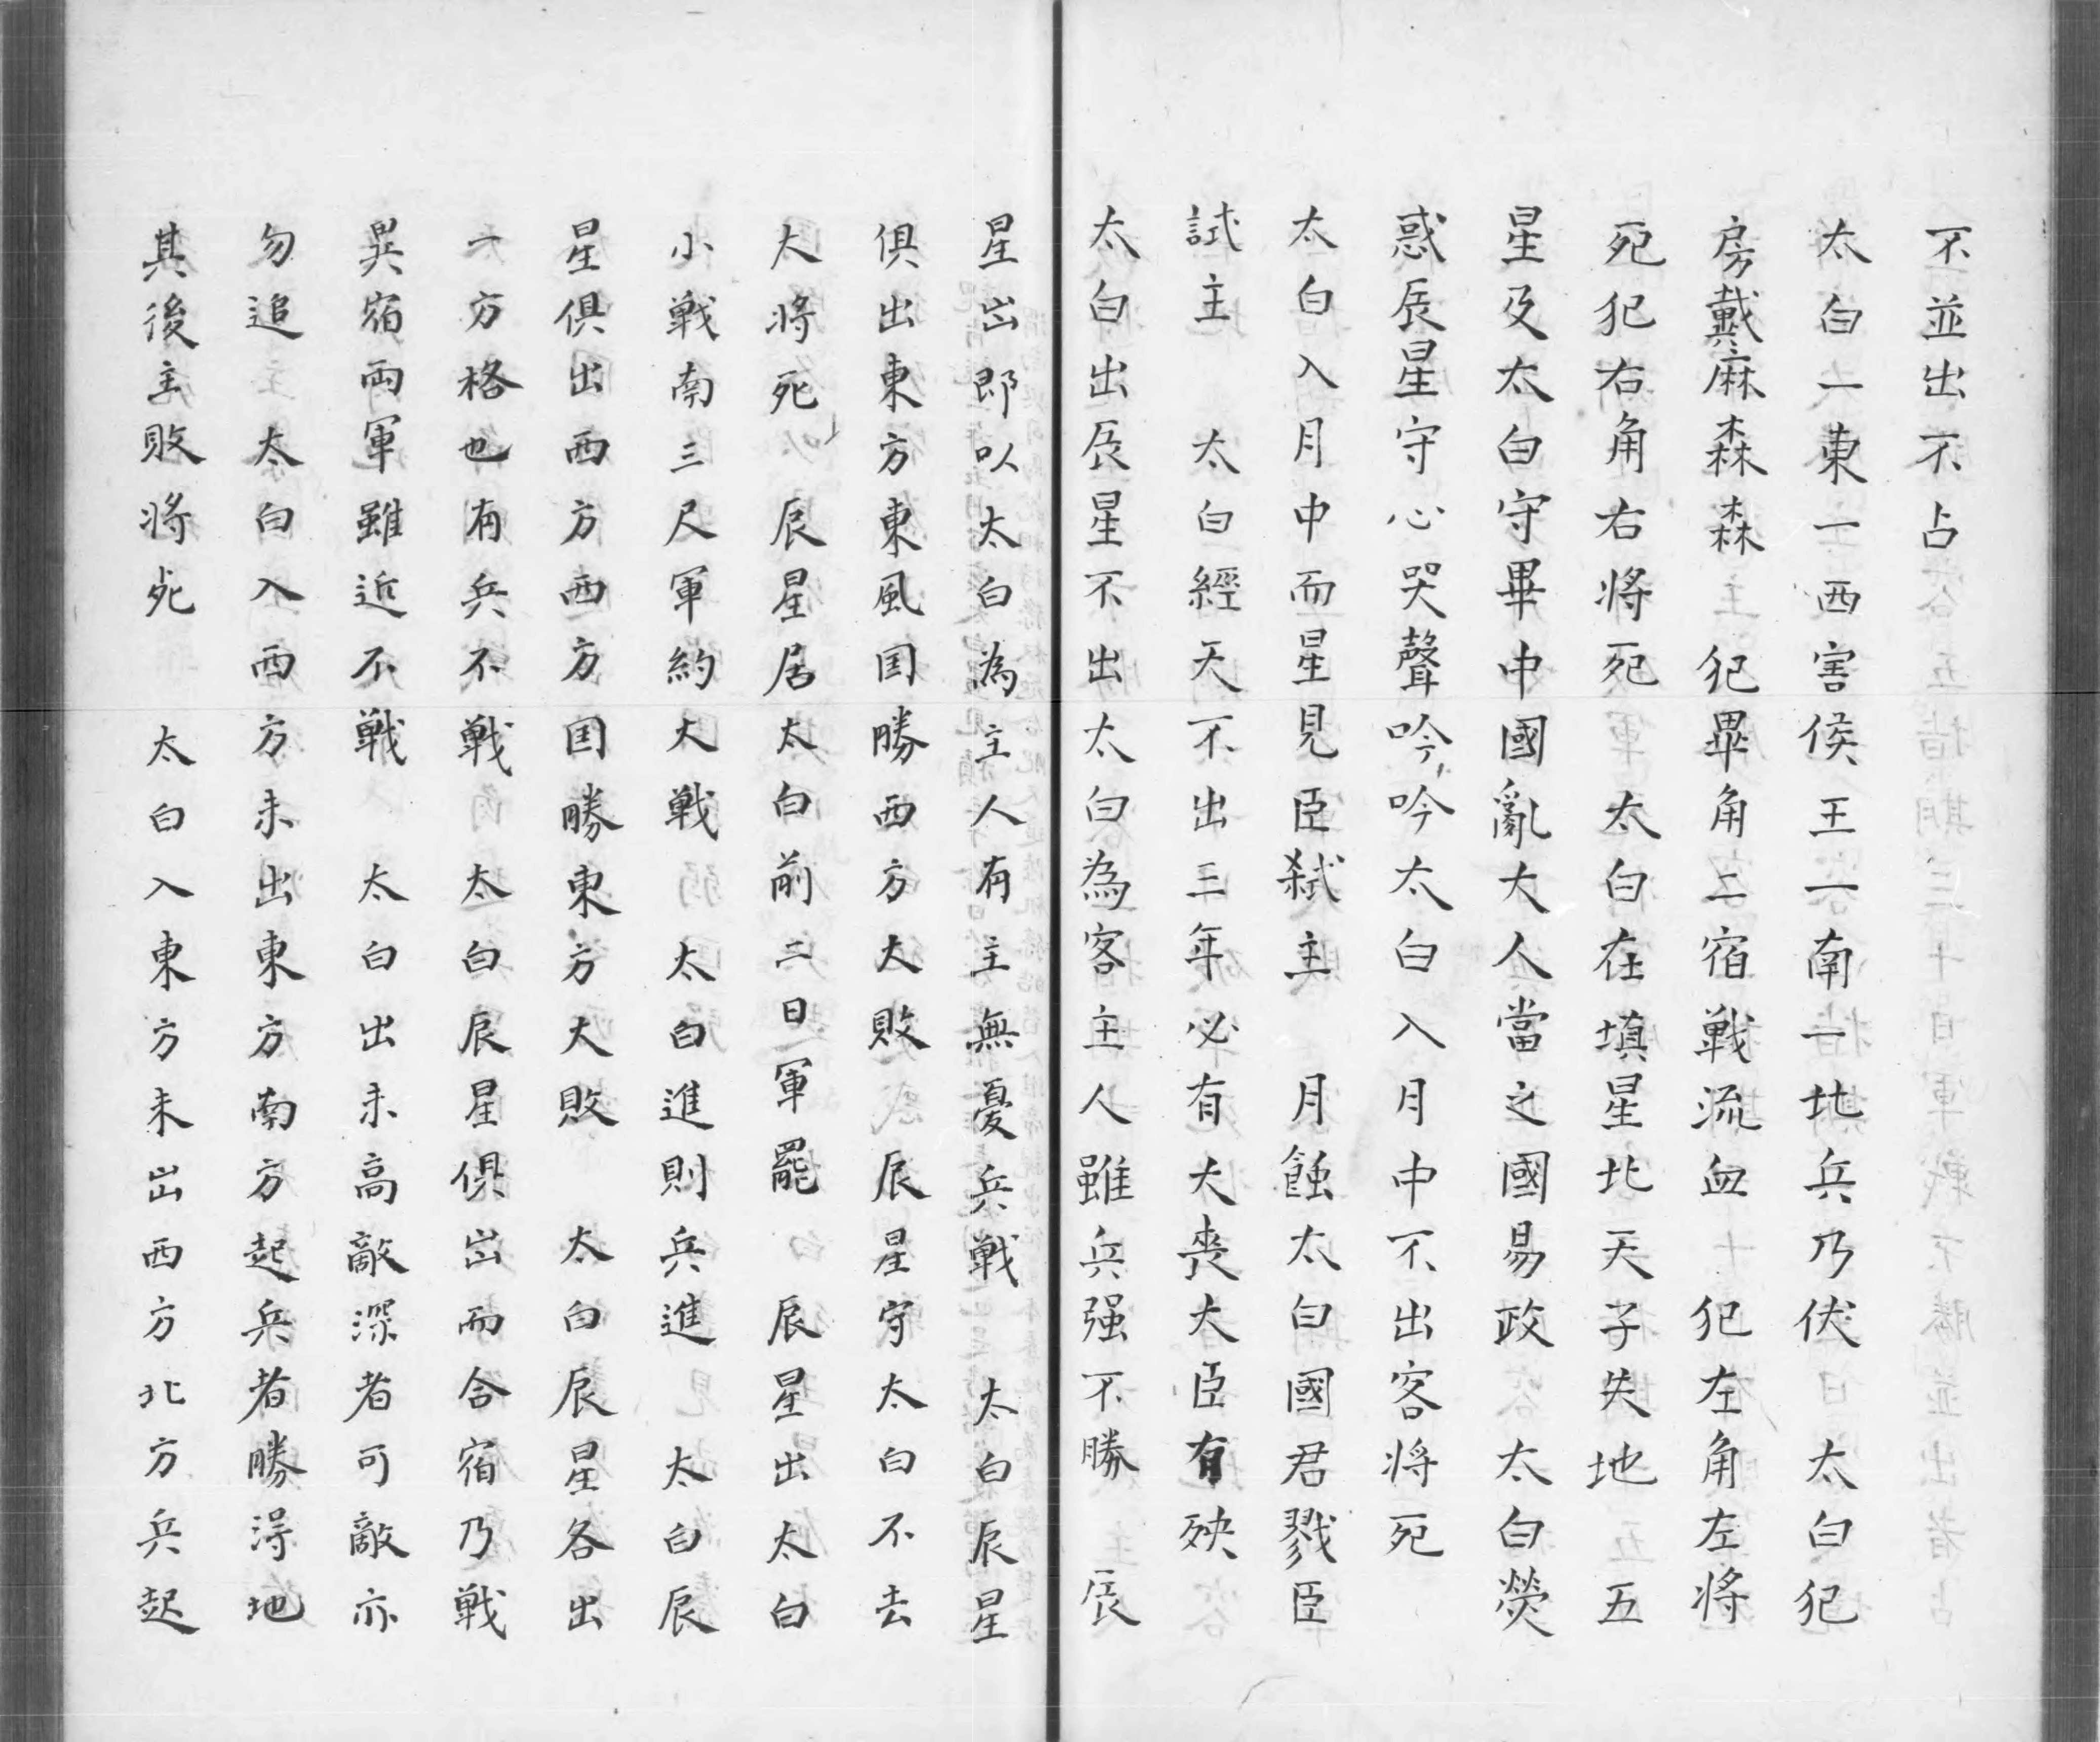 不並出不占
太白一東一西害侯王一南一北兵乃伏　太白犯
房戴麻森森　犯畢角二宿戰流血　犯左角左將
死犯右角右將死　太白在填星北天子失地　五
星及太白守畢中國亂大人當之國易政　太白熒
惑辰星守心哭聲吟吟太白入月中不出客將死
太白入月中而星見臣弑主　月蝕太白國君戮臣
試主　太白經天不出三年必有大喪大臣有殃
太白出辰星不出太白為客主人雖兵强不勝　辰
星出即以太白為主人有主無憂兵戦　太白辰星
俱出東方東風国勝西方大敗　辰星守太白不去
大將死　辰星居太白前二日軍罷　辰星出太白
小戦南三尺軍約大戦　太白進則兵進　太白辰
星俱出西方西方国勝東方大敗　太白辰星各出
一方格也有兵不戦　太白辰星俱出而合宿乃戦
異宿両軍雖近不戦　太白出未高敵深者可敵亦
勿追　太白入西方未出東方南方起兵者勝得地
其後主敗将死　太白入東方未出西方北方兵起